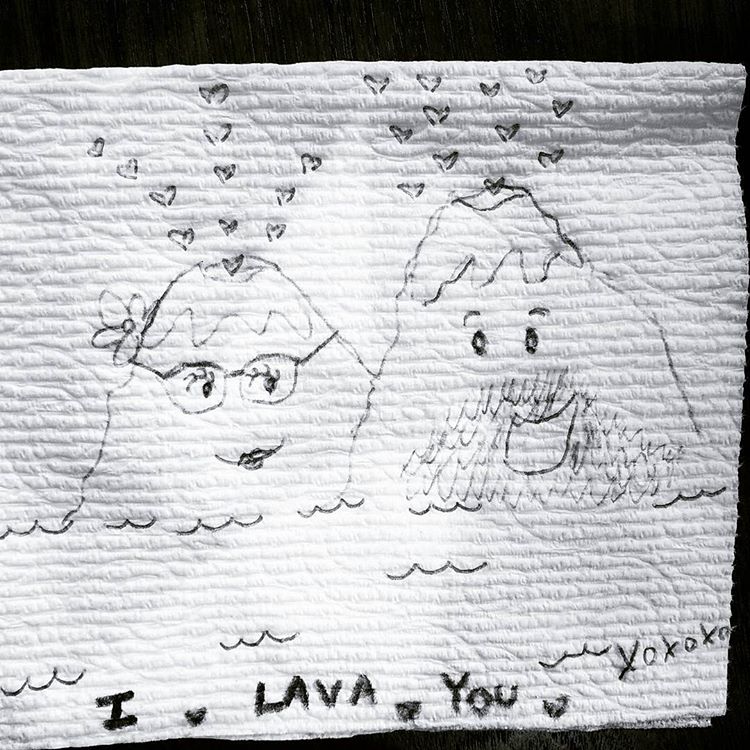 xoxoxo
I LAVA YOU